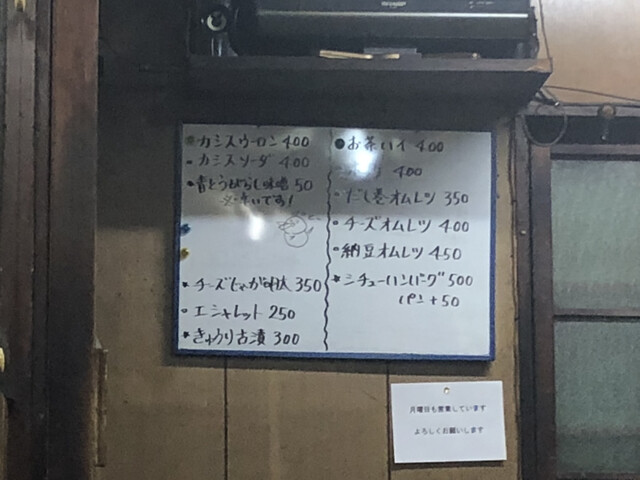 SHARP
カシスウーロン 400
カシスソーダ 400
青とうがらし味噌 50
辛いです!
チーズじゃが明太 350
エシャレット 250
きゅうり古漬 300
お茶ハイ 400
400
だし巻オムレツ 350
チーズオムレツ 400
納豆オムレツ 450
シチューハンバーグ 500
パン+50
月曜日も営業しています
よろしくお願いします